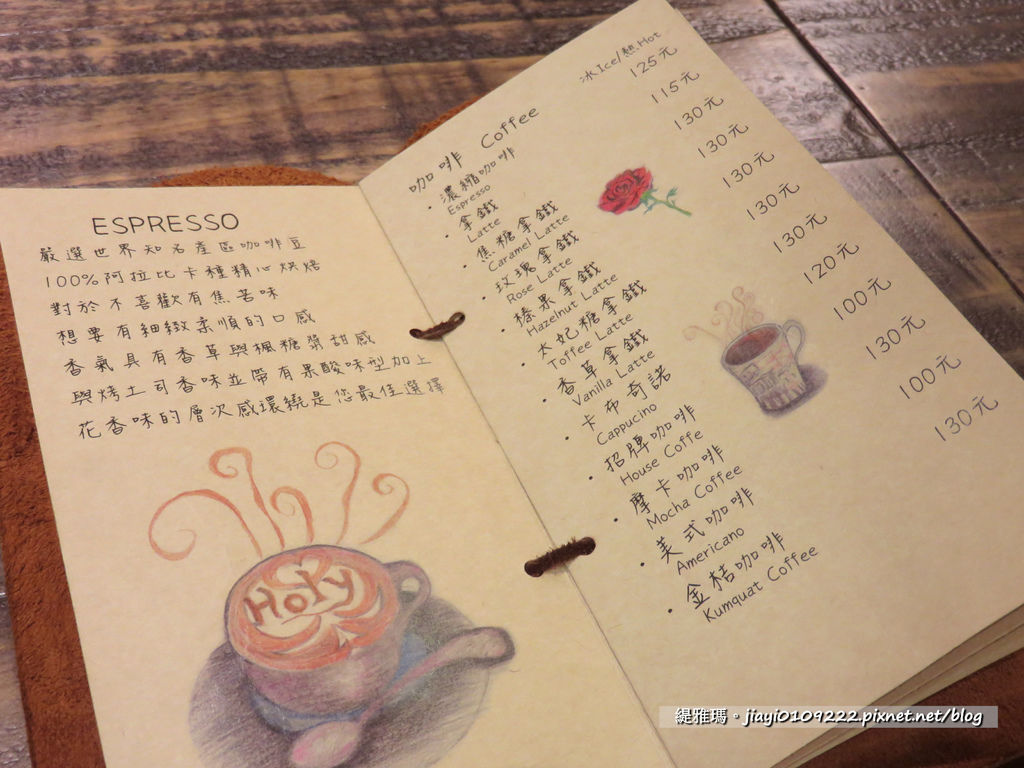 ESPRESSO
嚴選世界知名產區咖啡豆
100%阿拉比卡種精心烘焙
對於不喜歡有焦苦味
想要有細緻柔順的口感
香氣具有香草與楓糖漿甜感
與烤土司香味並帶有果酸味型加上
花香味的層次感環繞是您最佳選擇
Holy
咖啡 Coffee 冰Ice/熱Hot
• 濃縮咖啡 125元
Espresso
• 拿鐵 115元
Latte
• 焦糖拿鐵 130元
Caramel Latte
• 玫瑰拿鐵 130元
Rose Latte
• 榛果拿鐵 130元
Hazelnut Latte
• 太妃糖拿鐵 130元
Toffee Latte
• 香草拿鐵 130元
Vanilla Latte
• 卡布奇諾 120元
Cappucino
• 招牌咖啡 100元
House Coffe
• 摩卡咖啡 130元
Mocha Coffee
• 美式咖啡 100元
Americano
• 金桔咖啡 130元
Kumquat Coffee
緹雅瑪。jiayi0109222.pixnet.net/blog